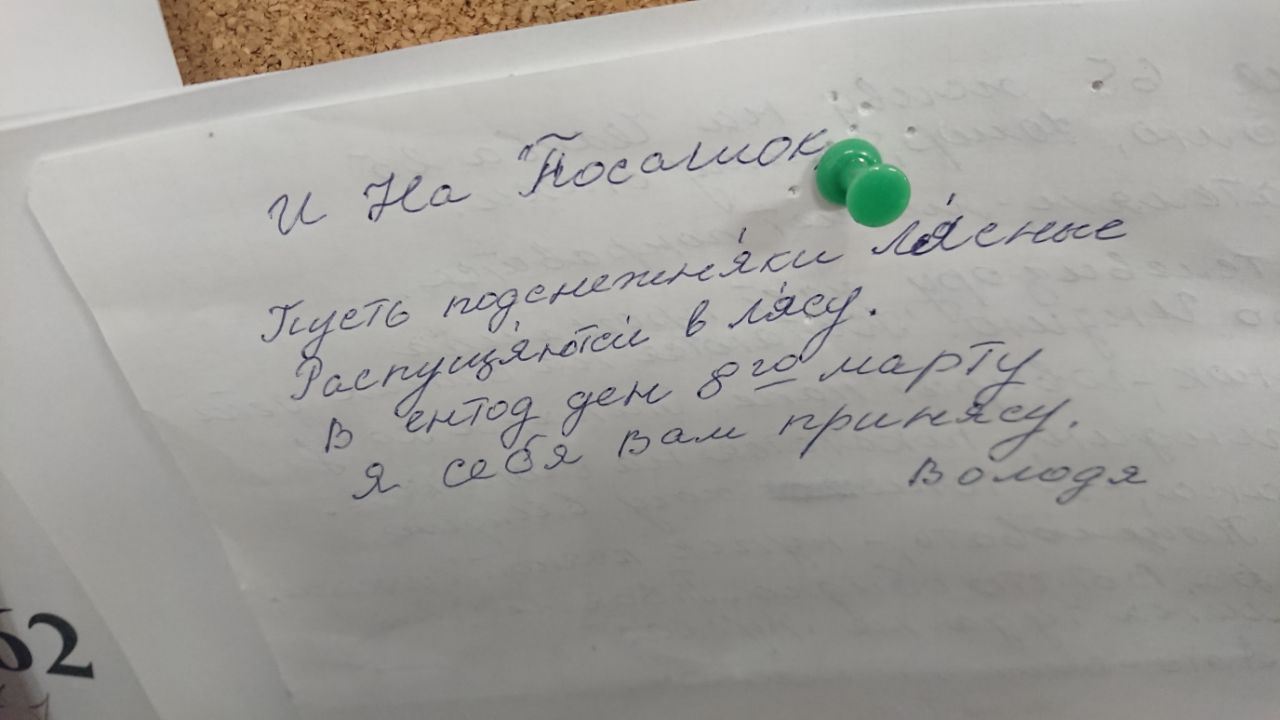 И На Посашок
Пусть подснежня́ки ля́сные
Распущя́ютси в ля́су.
В ентод ден 8го марту
Я себя вам принясу.
Володя
62